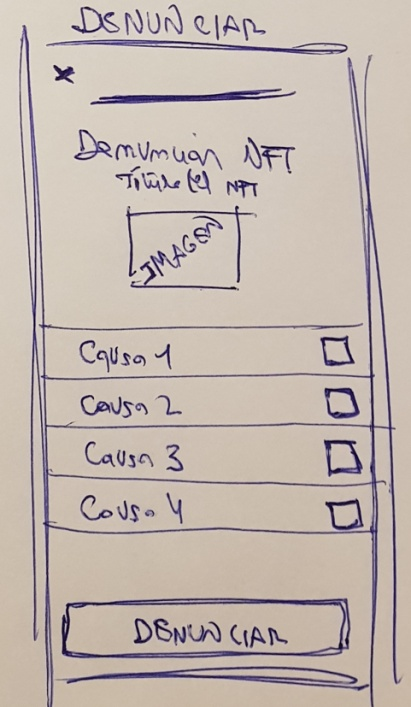 DENUNCIAR
x
Denunciar NFT
Título del NFT
IMAGEN
Causa 1
Causa 2
Causa 3
Causa 4
DENUNCIAR